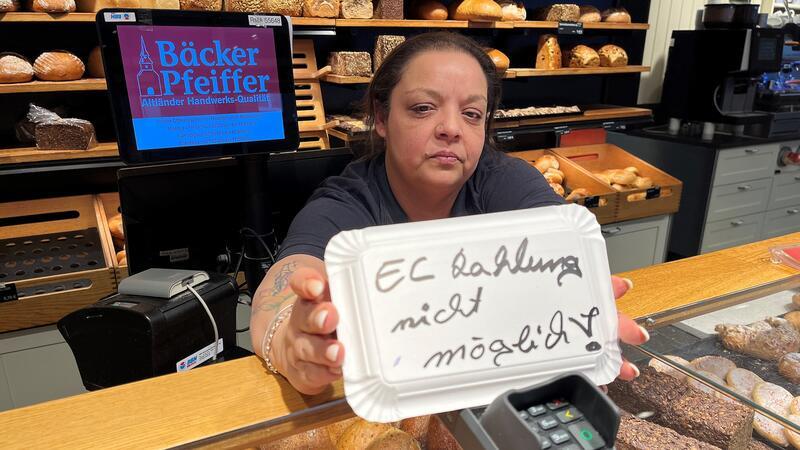 Bäcker
Pfeiffer
Altländer Handwerks-Qualität
EC Zahlung
nicht
möglich!